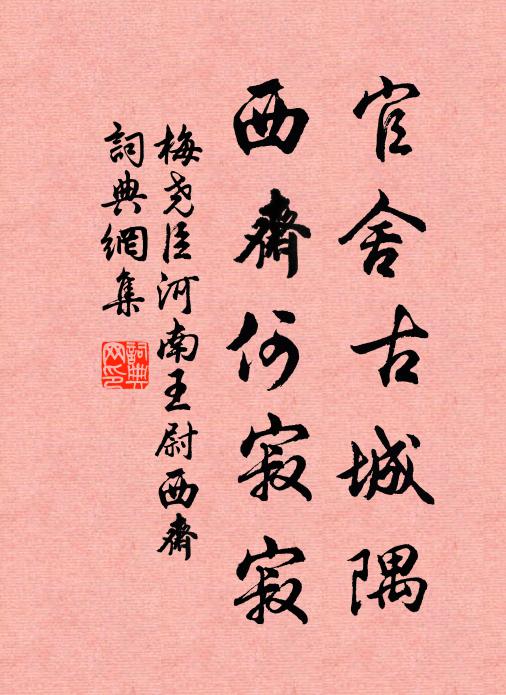 官舍古城隅
西齋何寂寂
梅尧臣河南王尉西齋
詞典網集
詞典网印